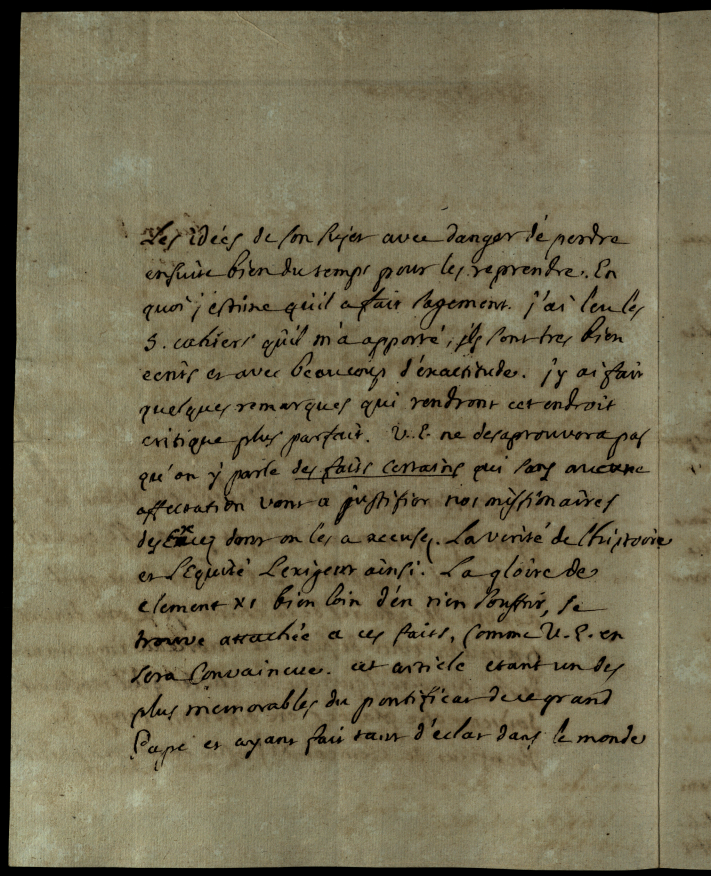 Les idées de son sujet avec danger de perdre
ensuite bien du temps pour les reprendre. En
quoi j'estime qu'il a fait sagement. j'ai leu les
5. cahiers qu'il m'a apporté, ils sont tres bien
ecrits et avec beaucoup d'exactitude. j'y ai fait
quelques remarques qui rendront cet endroit
critique plus parfait. V. E. ne desaprouvera pas
qu'on y parle des faits certains qui sans aucune
affectation vont a justifier nos missionaires
des dont on les a accusez. La verité de l'histoire
et l'Equité l'exigent ainsi. La gloire de
clement XI bien loin d'en rien souffrir, se
trouve attachée a ces faits, comme V. E. en
sera convaincue. cet article etant un des
plus memorables du pontificat de ce grand
Pape et ayant fait tant d'éclat dans le monde